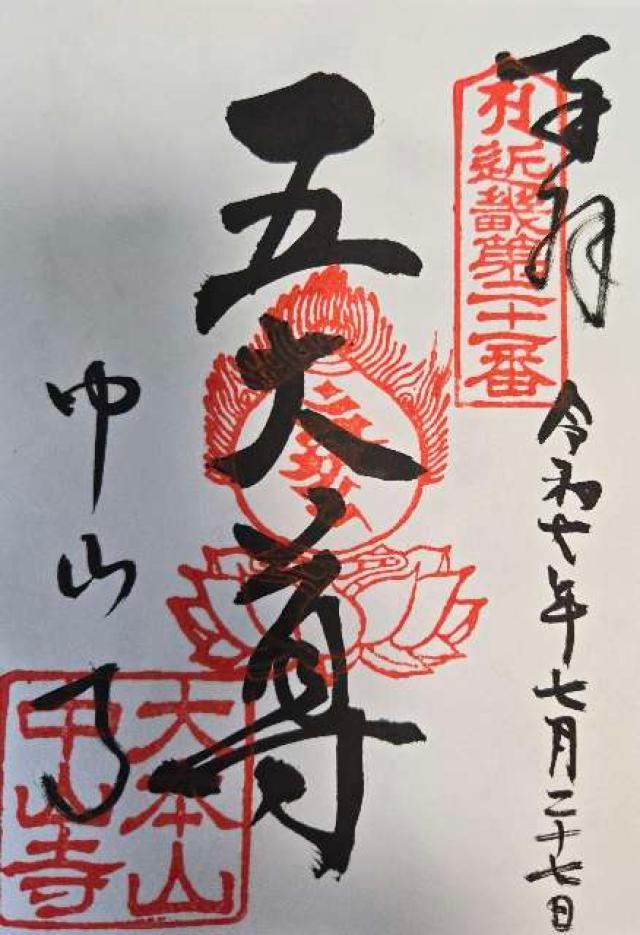 奉拝
札近畿第二十一番
令和七年七月二十七日
五大尊
中山寺
大本山
中山寺